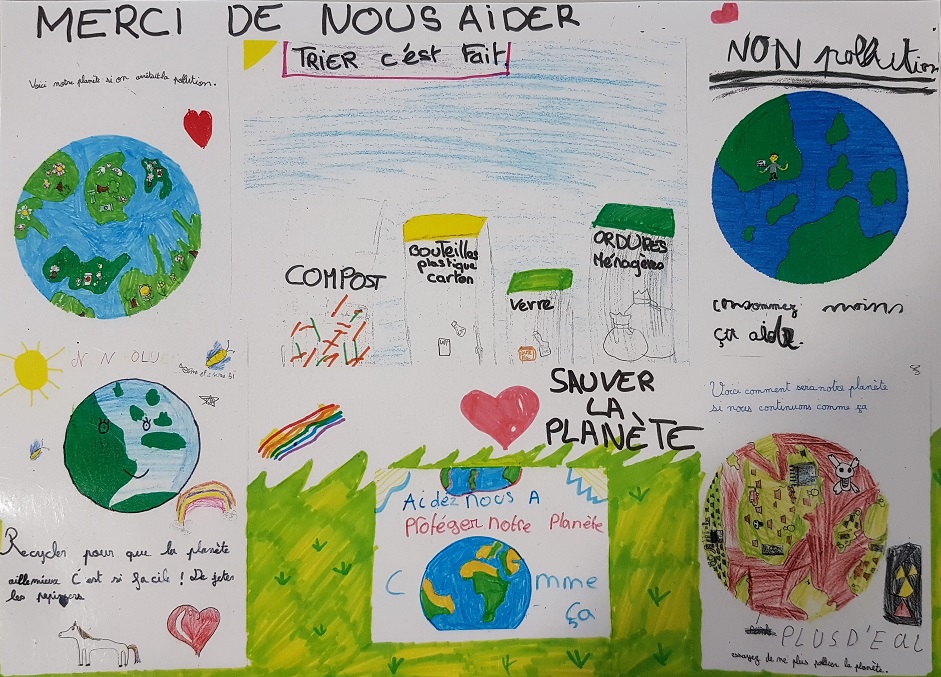 MERCI DE NOUS AIDER
Voici notre planète si on arrêtait la pollution.
TRIER c'est Fait.
NON pollution
COMPOST
BOUTEILLES
plastique
carton
verre
ORDURES
Ménagères
consommez moins
ça aide.
SAUVER
LA
PLANÈTE
Voici comment sera notre planète
si nous continuons comme ça
Aidez nous A
Protéger notre Planète
Comme
ça
Recycler pour que la planète
aille mieux C'est si facile ! De jeter
les papiers
PLUS D'EAU
essayez de ne plus polluer la planète.